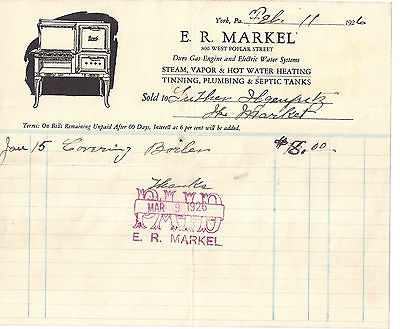 York, Pa. Feb. 11 1926
E. R. MARKEL
800 WEST POPLAR STREET
Duro Gas Engine and Electric Water Systems
STEAM, VAPOR & HOT WATER HEATING
TINNING, PLUMBING & SEPTIC TANKS
Sold to Luther
The Market
Terms: On Bills Remaining Unpaid After 60 Days, Interest at 6 per cent will be added.
Jan 15 Covering Boiler $8.00
Thanks
PAID
MAR 9 1926
E. R. MARKEL